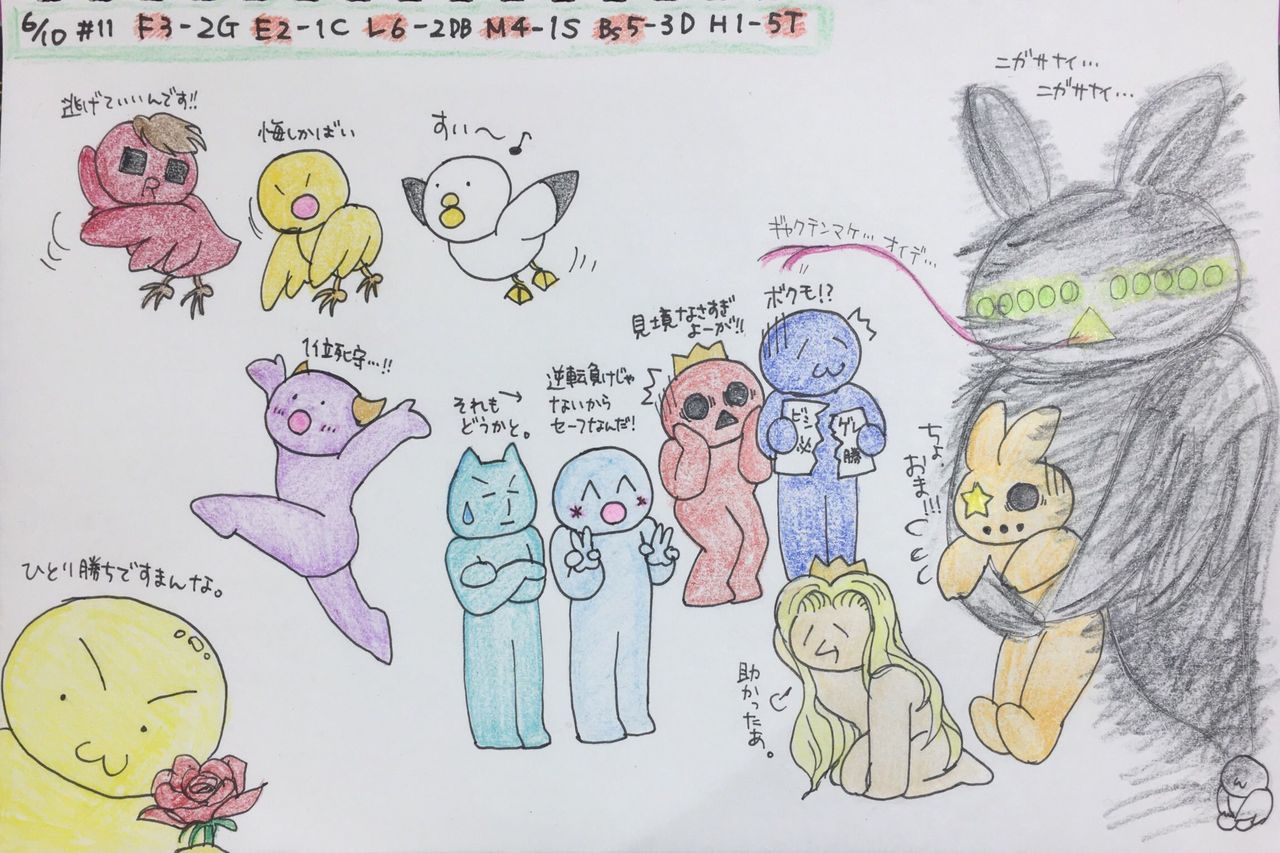 6/10 #11 F3-2G E2-1C L6-2DB M4-1S Bs5-3D H1-5T
逃げていいんです!!
悔しかばい
すい〜♪
ニガサナイ…
ニガサナイ…
ギャクテンマケ… オイデ…
ボクモ!?
見境なさすぎ
よーが!!
1位死守…!!
それも
どうかと。
逆転負けじゃ
ないから
セーフなんだ!
ゲレ
勝
ちょ、
おま!!!
ひとり勝ちですまんな。
助かったぁ。